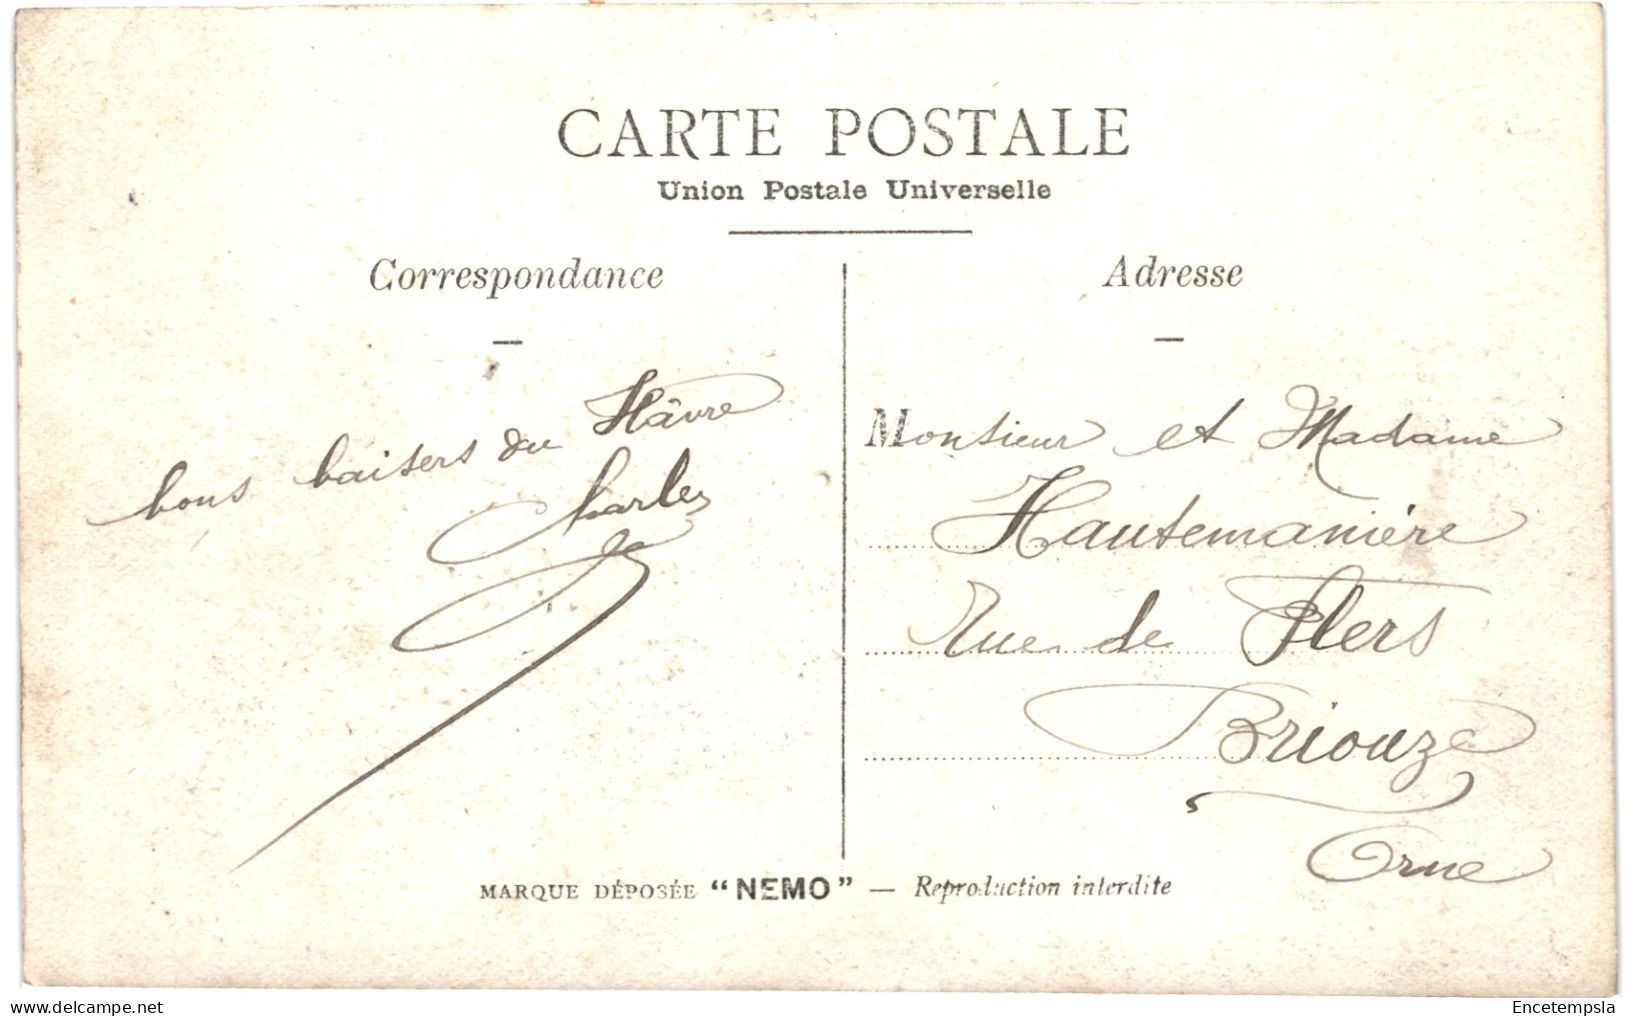 CARTE POSTALE
Union Postale Universelle
Correspondance
bons baisers du Hâvre
Charles
Adresse
Monsieur et Madame
Hautemanière
Rue de Flers
Briouze
Orne
MARQUE DÉPOSÉE “NEMO” — Reproduction interdite
www.delcampe.net
Encetempsla